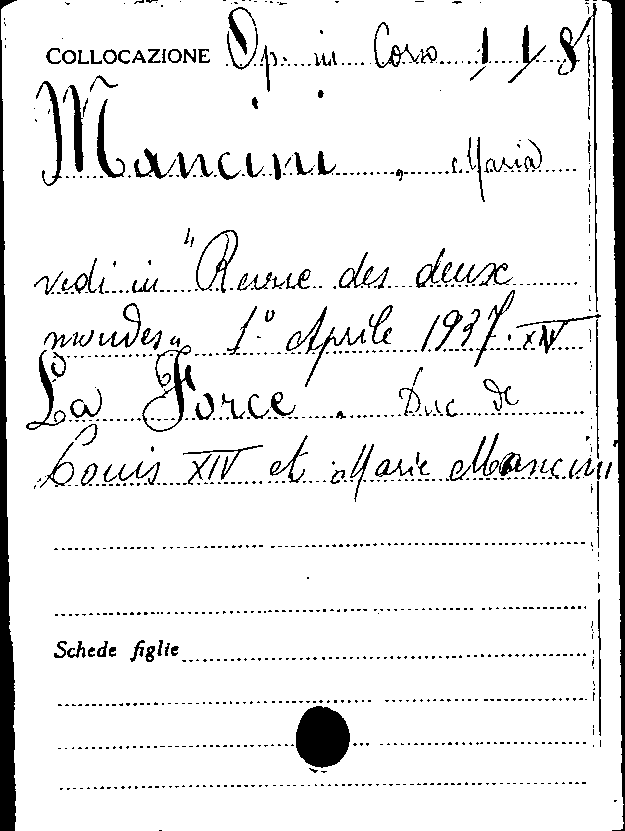 COLLOCAZIONE Op. in Corso 1/1/8
Mancini, Maria
vedi in "Revue des deux
mondes" 1.º Aprile 1937. XIV
La Force, Duc de
Louis XIV et Marie Mancini
Schede figlie